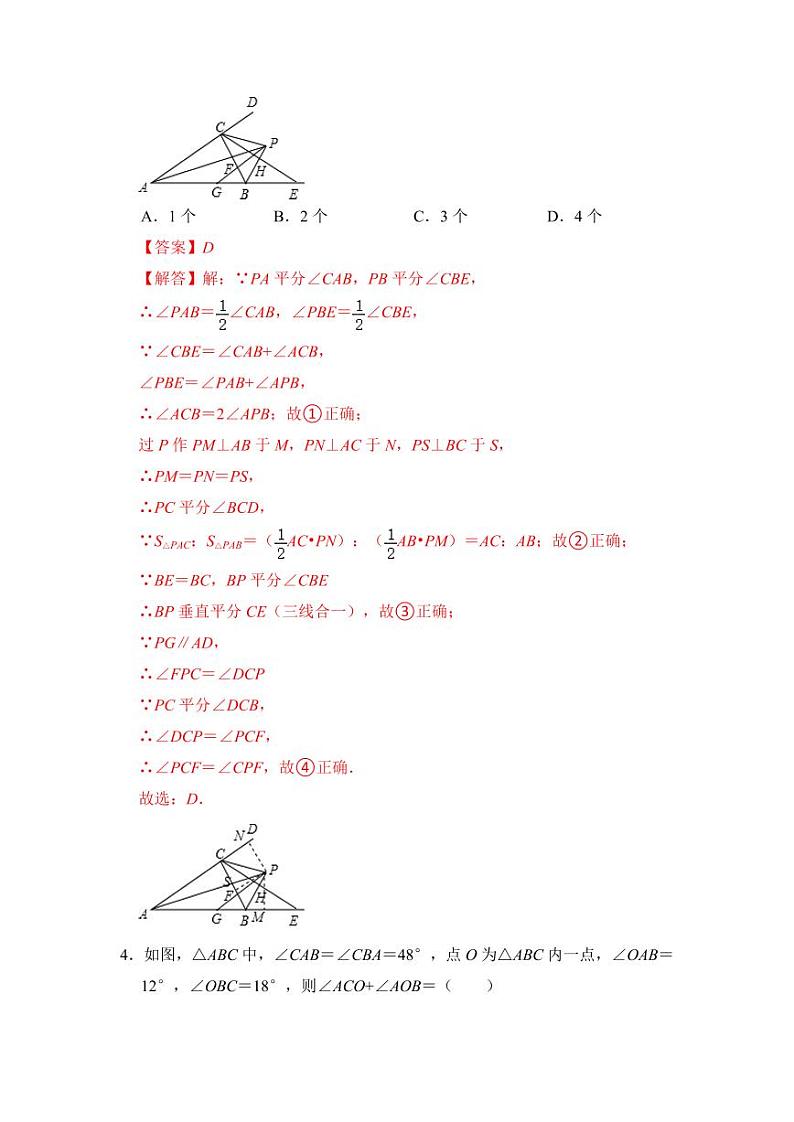 D
C
P
F
H
A
G
B
E
A．1 个 B．2 个 C．3 个 D．4 个
【答案】D
【解答】解：∵PA 平分∠CAB，PB 平分∠CBE，
∴∠PAB＝1/2∠CAB，∠PBE＝1/2∠CBE，
∵∠CBE＝∠CAB+∠ACB，
∠PBE＝∠PAB+∠APB，
∴∠ACB＝2∠APB；故①正确；
过 P 作 PM⊥AB 于 M，PN⊥AC 于 N，PS⊥BC 于 S，
∴PM＝PN＝PS，
∴PC 平分∠BCD，
∵S△PAC：S△PAB＝（1/2AC•PN）：（1/2AB•PM）＝AC：AB；故②正确；
∵BE＝BC，BP 平分∠CBE
∴BP 垂直平分 CE（三线合一），故③正确；
∵PG∥AD，
∴∠FPC＝∠DCP
∵PC 平分∠DCB，
∴∠DCP＝∠PCF，
∴∠PCF＝∠CPF，故④正确．
故选：D．
N D
C
P
S
F
H
A
G
B
M
E
4．如图，△ABC 中，∠CAB＝∠CBA＝48°，点 O 为△ABC 内一点，∠OAB＝
12°，∠OBC＝18°，则∠ACO+∠AOB＝（ ）